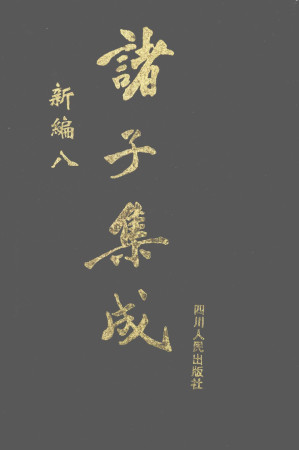 諸子集成
新編八
四川人民出版社